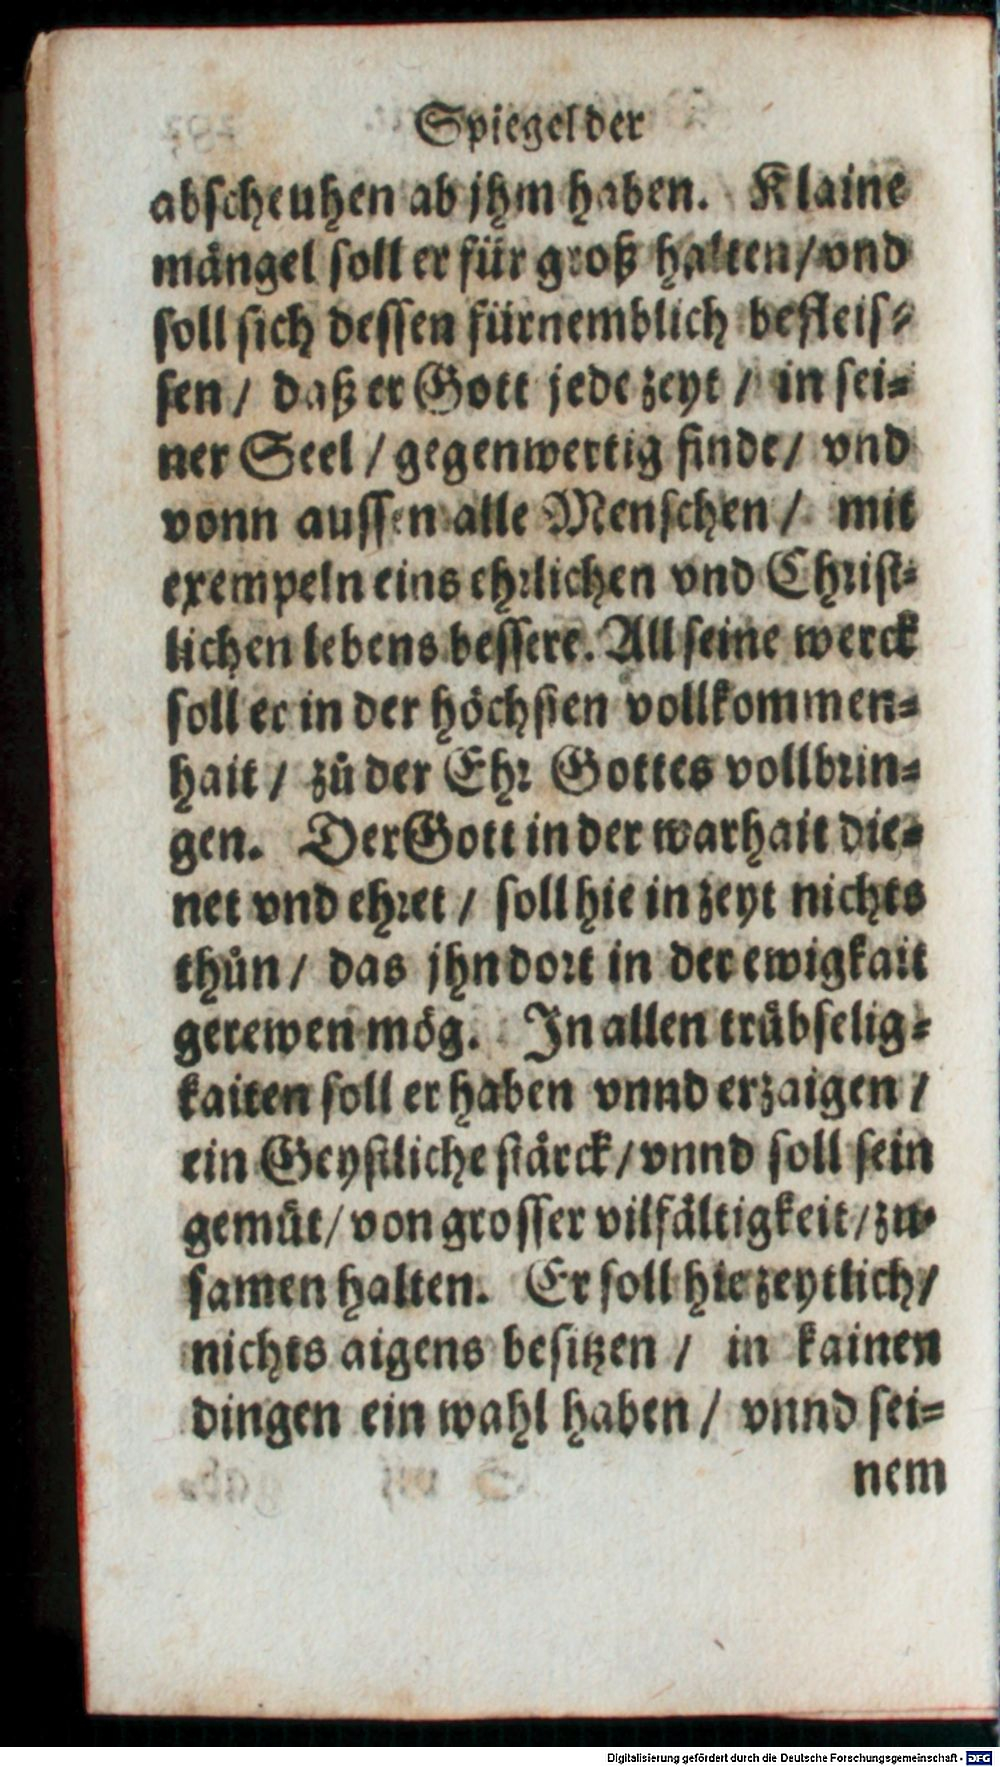 Spiegel der
abscheuhen ab jhm haben. Klaine
mångel soll er für groß halten/vnd
soll sich dessen fürnemblich befleis-
sen/ daß er Gott jede zeyt/ in sei-
ner Seel/gegenwertig finde/ vnd
vonn aussen alle Menschen/ mit
exempeln eins ehrlichen vnd Christ-
lichen lebens bessere. All seine werck
soll er in der höchsten vollkommen-
hait/ zů der Ehr Gottes vollbrin-
gen. Der Gott in der warhait die-
net vnd ehret/ soll hie in zeyt nichts
thůn/ das jhn dort in der ewigkait
gerewen mög. In allen trůbselig-
kaiten soll er haben vnnd erzaigen/
ein Geystliche stärck/vnnd soll sein
gemüt/von grosser vilfältigkeit/zu-
samen halten. Er soll hie zeytlich/
nichts aigens besitzen/ in kainen
dingen ein wahl haben/ vnnd sei-
nem
Digitalisierung gefördert durch die Deutsche Forschungsgemeinschaft - DFG